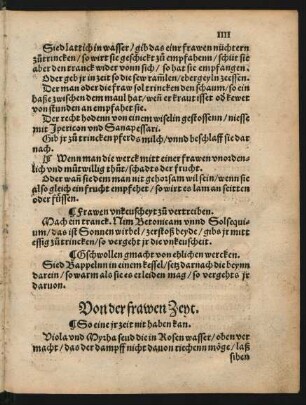 IIII
Sied lattich in wasser / gib das einr frawen nüchtern
zů trincken / so wirt sie geschickt zů empfahenn / schüt sie
aber den tranck wider vonn sich / so hat sie empfangen.
Oder geb jr in zeit so die sew ramlen / ebergeyln zeessen.
Der man oder die fraw sol trincken den schaum / so ein
haße zwischen dem maul hat / weñ er kraut isset od kewet
von stunden an empfahet sie.
Der recht hodenn von einem wiselin gestossenn / niesse
mit Ipericon vnd Sanapessari.
Gib jr zů trincken pferds milch / vnnd beschlaff sie dar
nach.
Wenn man die werck mitt einer frawen vnorden-
lich vnd můtwillig thůt / schadts der frucht.
Oder wañ sie dem man nit gehorsam wil sein / wenn sie
als o gleich ein frucht empfehet / so wirt es lam an seitten
oder füssen.
¶ Frawen vnkeuscheyt zů vertreiben.
Mach ein tranck. Nim Betonicam vnnd Solsequi-
um / das ist Sonnen wirbel / zerstoß beyde / gibs jr mitt
essig zů trincken / so vergeht jr die vnkeuscheit.
¶ Gschwollen gmacht von ehlichen wercken.
Sied Bappelnn in einem kessel / setz darnach die beynn
darein / so warm als sie es erleiden mag / so vergehts jr
daruon.
Von der frawen Zeyt.
¶ So eine jr zeit nit haben kan.
Viola vnd Myrha seud die in Rosen wasser / oben ver
macht / das der dampff nicht dauon riechenn möge / laß
sihen